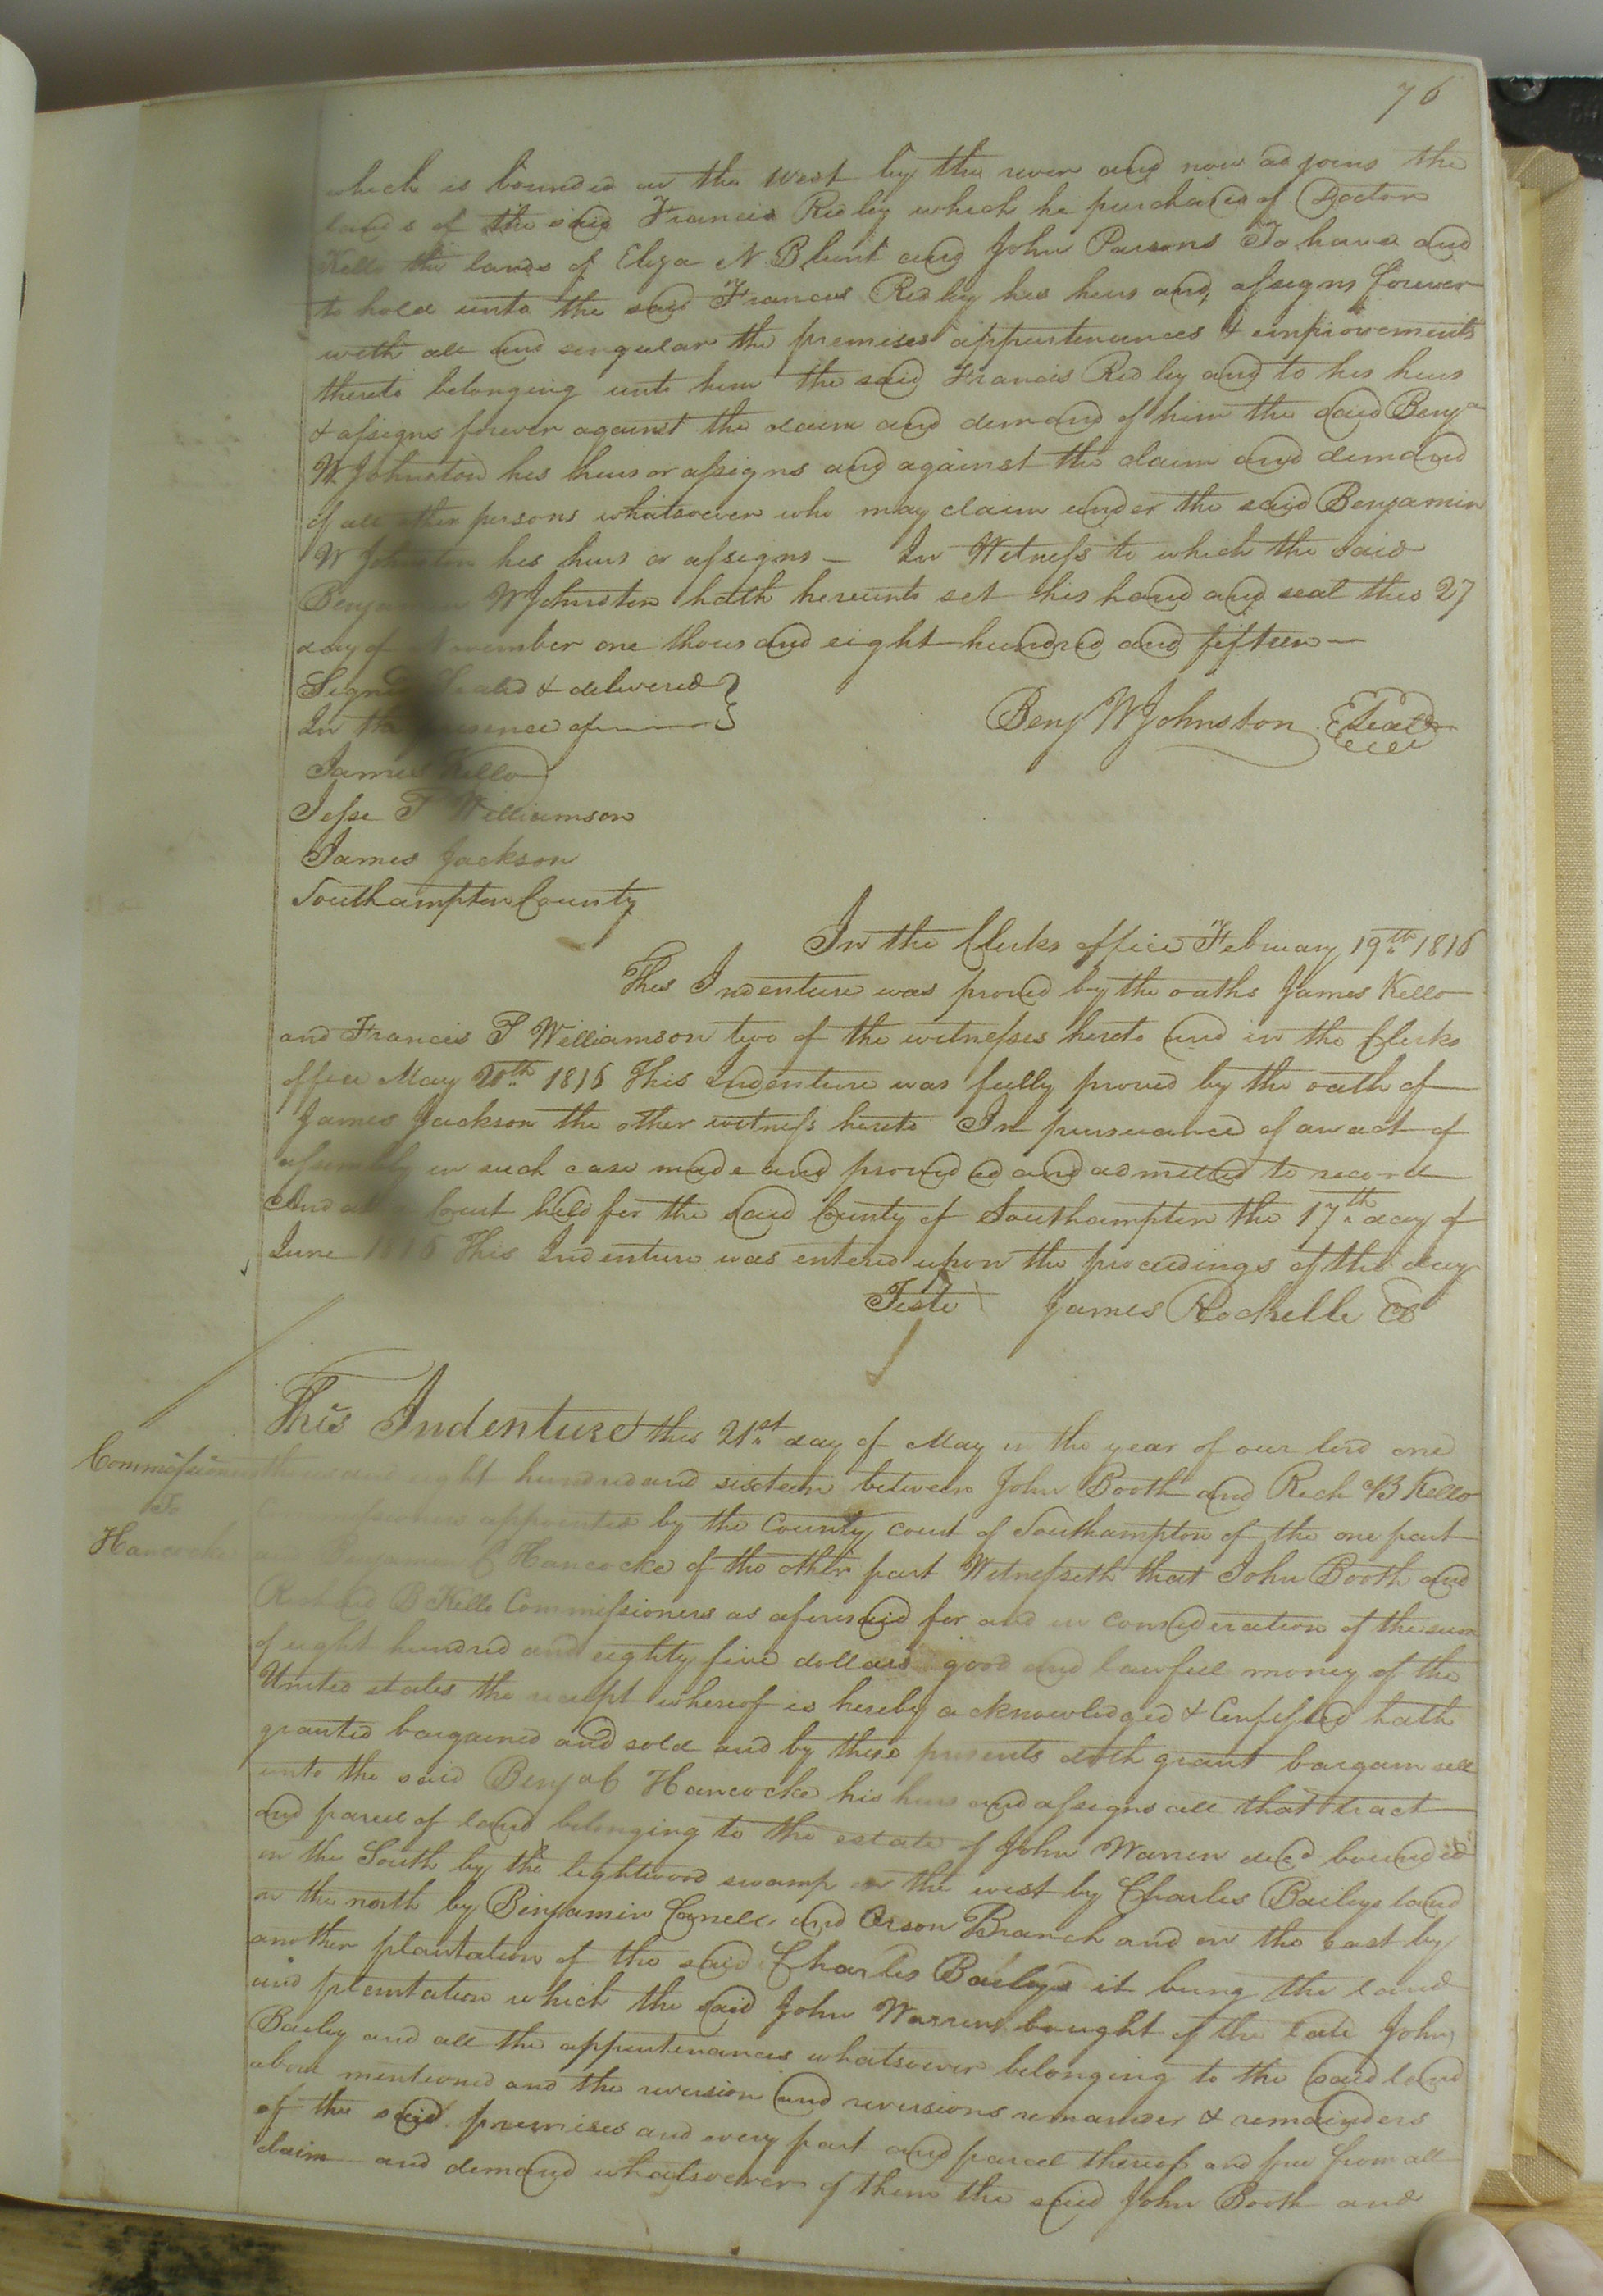 76
which is bounded on the west by the river and now adjoins the
lands of the said Francis Ridley which he purchased of Doctor
Kello the lands of Eliza N Blunt and John Parsons To have and
to hold unto the said Francis Ridley his heirs and assigns forever
with all and singular the premises appurtenances & improvements
thereto belonging unto him the said Francis Ridley and to his heirs
& assigns forever against the claim and demand of him the said Benja
W Johnston his heirs or assigns and against the claim and demand
of all other persons whatsoever who may claim under the said Benjamin
W Johnston his heirs or assigns — In Witness to which the said
Benjamin W Johnston hath hereunto set his hand and seal this 27
day of November one thousand eight hundred and fifteen —
Signed Sealed & delivered
In the presence of
Benj W Johnston Seal
James Kello
Jesse T Williamson
James Jackson
Southampton County
In the Clerks office February 19th 1816
This Indenture was proved by the oaths James Kello
and Francis T Williamson two of the witnesses hereto and in the Clerks
office May 20th 1816 This Indenture was fully proved by the oath of
James Jackson the other witness hereto In pursuance of an act of
assembly in such case made and provided and admitted to record
And at a Court held for the said County of Southampton the 17th day of
June 1816 This Indenture was entered upon the proceedings of the day
Teste James Rochelle CC
This Indenture this 21st day of May in the year of our lord one
Commissioners
thousand eight hundred and sixteen between John Booth and Rich B Kello
To
Commissioners appointed by the County court of Southampton of the one part
Hancocke
and Benjamin C Hancocke of the other part Witnesseth that John Booth and
Richard B Kello Commissioners as aforesaid for and in consideration of the sum
of eight hundred and eighty five dollars good and lawful money of the
United states the receipt whereof is hereby acknowledged & Confessed hath
granted bargained and sold and by these presents doth grant bargain sell
unto the said Benja C Hancocke his heirs and assigns all that tract
and parcel of land belonging to the estate of John Warren decd bounded
on the South by the lightwood swamp on the west by Charles Baileys land
on the north by Benjamin and Orson Branch and on the east by
another plantation of the said Charles Baileys it being the land
and plantation which the said John Warren bought of the late John
Bailey and all the appurtenances whatsoever belonging to the said land
above mentioned and the reversion and reversions remainder & remainders
of the said premises and every part and parcel thereof and free from all
claim and demand whatsoever of them the said John Booth and